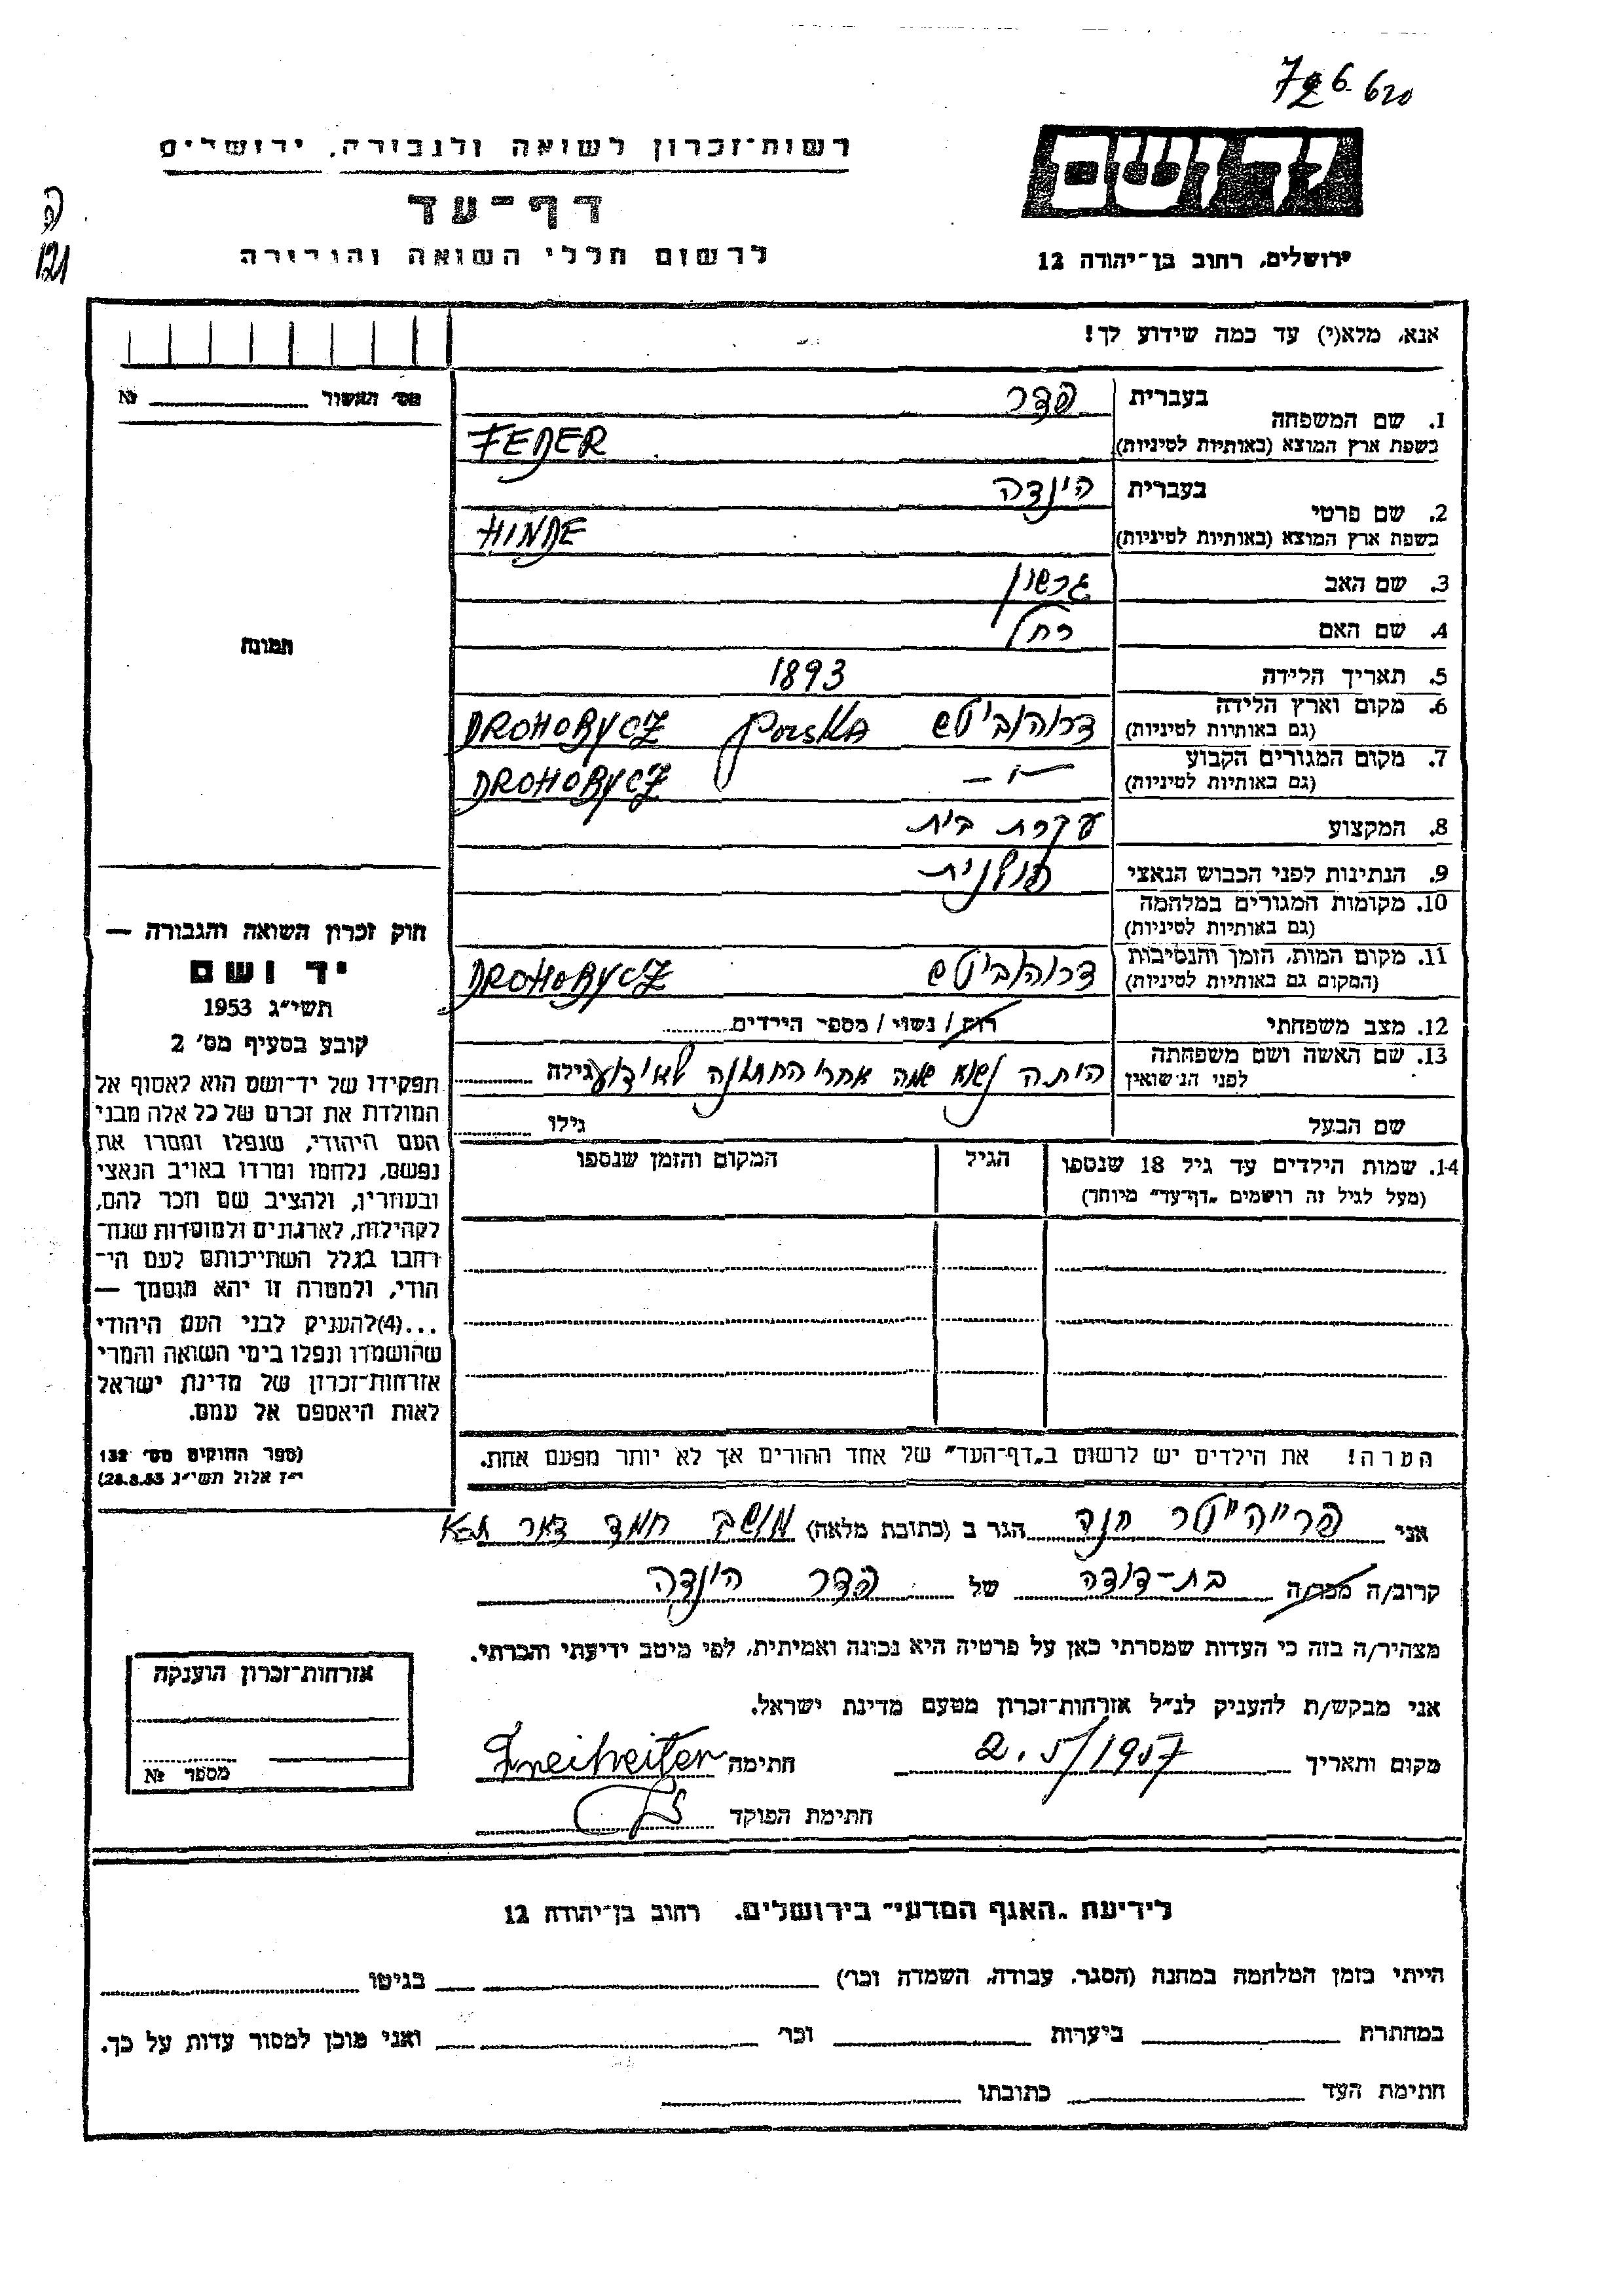 726620
רשות־זכרון לשואה ולגבורה, ירושלים
יד ושם
דף־עד
ה
121
לרשום חללי השואה והגבורה
ירושלים, רחוב בן־יהודה 12
אנא, מלא(י) עד כמה שידוע לך!
מס׳ האשור № 
1. שם המשפחה בעברית פדר
בשפת ארץ המוצא (באותיות לטיניות) FEDER
2. שם פרטי בעברית הינדה
בשפת ארץ המוצא (באותיות לטיניות) HINDE
3. שם האב גרשון
4. שם האם רחל
תמונה
5. תאריך הלידה 1893
6. מקום וארץ הלידה דרוהוביטש Polska DROHOBYCZ
(גם באותיות לטיניות)
7. מקום המגורים הקבוע DROHOBYCZ
(גם באותיות לטיניות)
8. המקצוע עקרת בית
9. הנתינות לפני הכבוש הנאצי פולנית
10. מקומות המגורים במלחמה
(גם באותיות לטיניות)
11. מקום המות, הזמן והנסיבות דרוהוביטש DROHOBYCZ
(המקום גם באותיות לטיניות)
12. מצב משפחתי רווק / נשוי / מספר הילדים
13. שם האשה ושם משפחתה
לפני הנישואין היתה נשוא שמה אחרי החתונה לא ידוע גילה
שם הבעל גילו
14. שמות הילדים עד גיל 18 שנספו הגיל המקום והזמן שנספו
(מעל לגיל זה רושמים „דף־עד” מיוחד)
חוק זכרון השואה והגבורה —
יד ושם
תשי״ג 1953
קובע בסעיף מס׳ 2
תפקידו של יד־ושם הוא לאסוף אל
המולדת את זכרם של כל אלה מבני
העם היהודי, שנפלו ומסרו את
נפשם, נלחמו ומרדו באויב הנאצי
ובעוזריו, ולהציב שם וזכר להם,
לקהילות, לארגונים ולמוסדות שנח־
רחבו בגלל השתייכותם לעם הי־
הודי, ולמטרה זו יהא מוסמך —
...(4)להעניק לבני העם היהודי
שהושמדו ונפלו בימי השואה והמרי
אזרחות־זכרון של מדינת ישראל
לאות היאספם אל עמם.
(ספר החוקים מס׳ 132
י״ז אלול תשי״ג 28.8.53)
הערה! את הילדים יש לרשום ב„דף־העד” של אחד ההורים אך לא יותר מפעם אחת.
אני פרייהייטר חנה הגר ב (כתובת מלאה) מושב חמד דאר נע
קרוב/ה מכר/ה בת-דודה של פדר הינדה
מצהיר/ה בזה כי העדות שמסרתי כאן על פרטיה היא נכונה ואמיתית, לפי מיטב ידיעתי והכרתי.
אני מבקש/ת להעניק לנ״ל אזרחות־זכרון מטעם מדינת ישראל.
מקום ותאריך 2.5/1957 חתימה Freiheiter
חתימת הפוקד
אזרחות־זכרון הוענקה
מספר №
לידיעת „האגף המדעי” בירושלים, רחוב בן־יהודה 12
הייתי בזמן המלחמה במחנה (הסגר, עבודה, השמדה וכר׳) בגיטו
במחתרת ביערות וכר׳ ואני מוכן למסור עדות על כך.
חתימת העד כתובתו